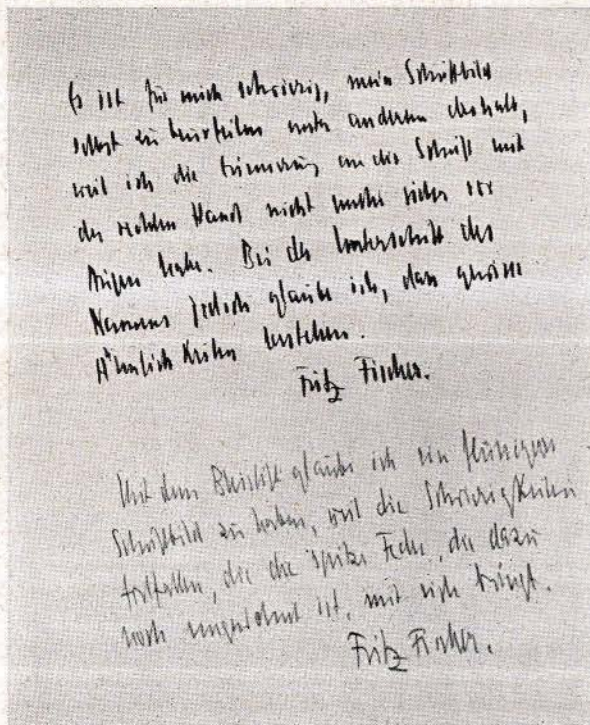 Es ist für mich schwierig, mein Schriftbild
selbst zu beurteilen unter anderem deshalb,
weil ich die Erinnerung an die Schrift mit
der rechten Hand nicht mehr sicher vor
Augen habe. Bei der Unterschrift des
Namens jedoch glaube ich, dass gewisse
Ähnlichkeiten bestehen.
Fritz Fischer.
Mit dem Bleistift glaube ich ein flüssigeres
Schriftbild zu haben, weil die Schwierigkeiten
fortfallen, die die spitze Feder, die dazu
noch ungewohnt ist, mit sich bringt.
Fritz Fischer.